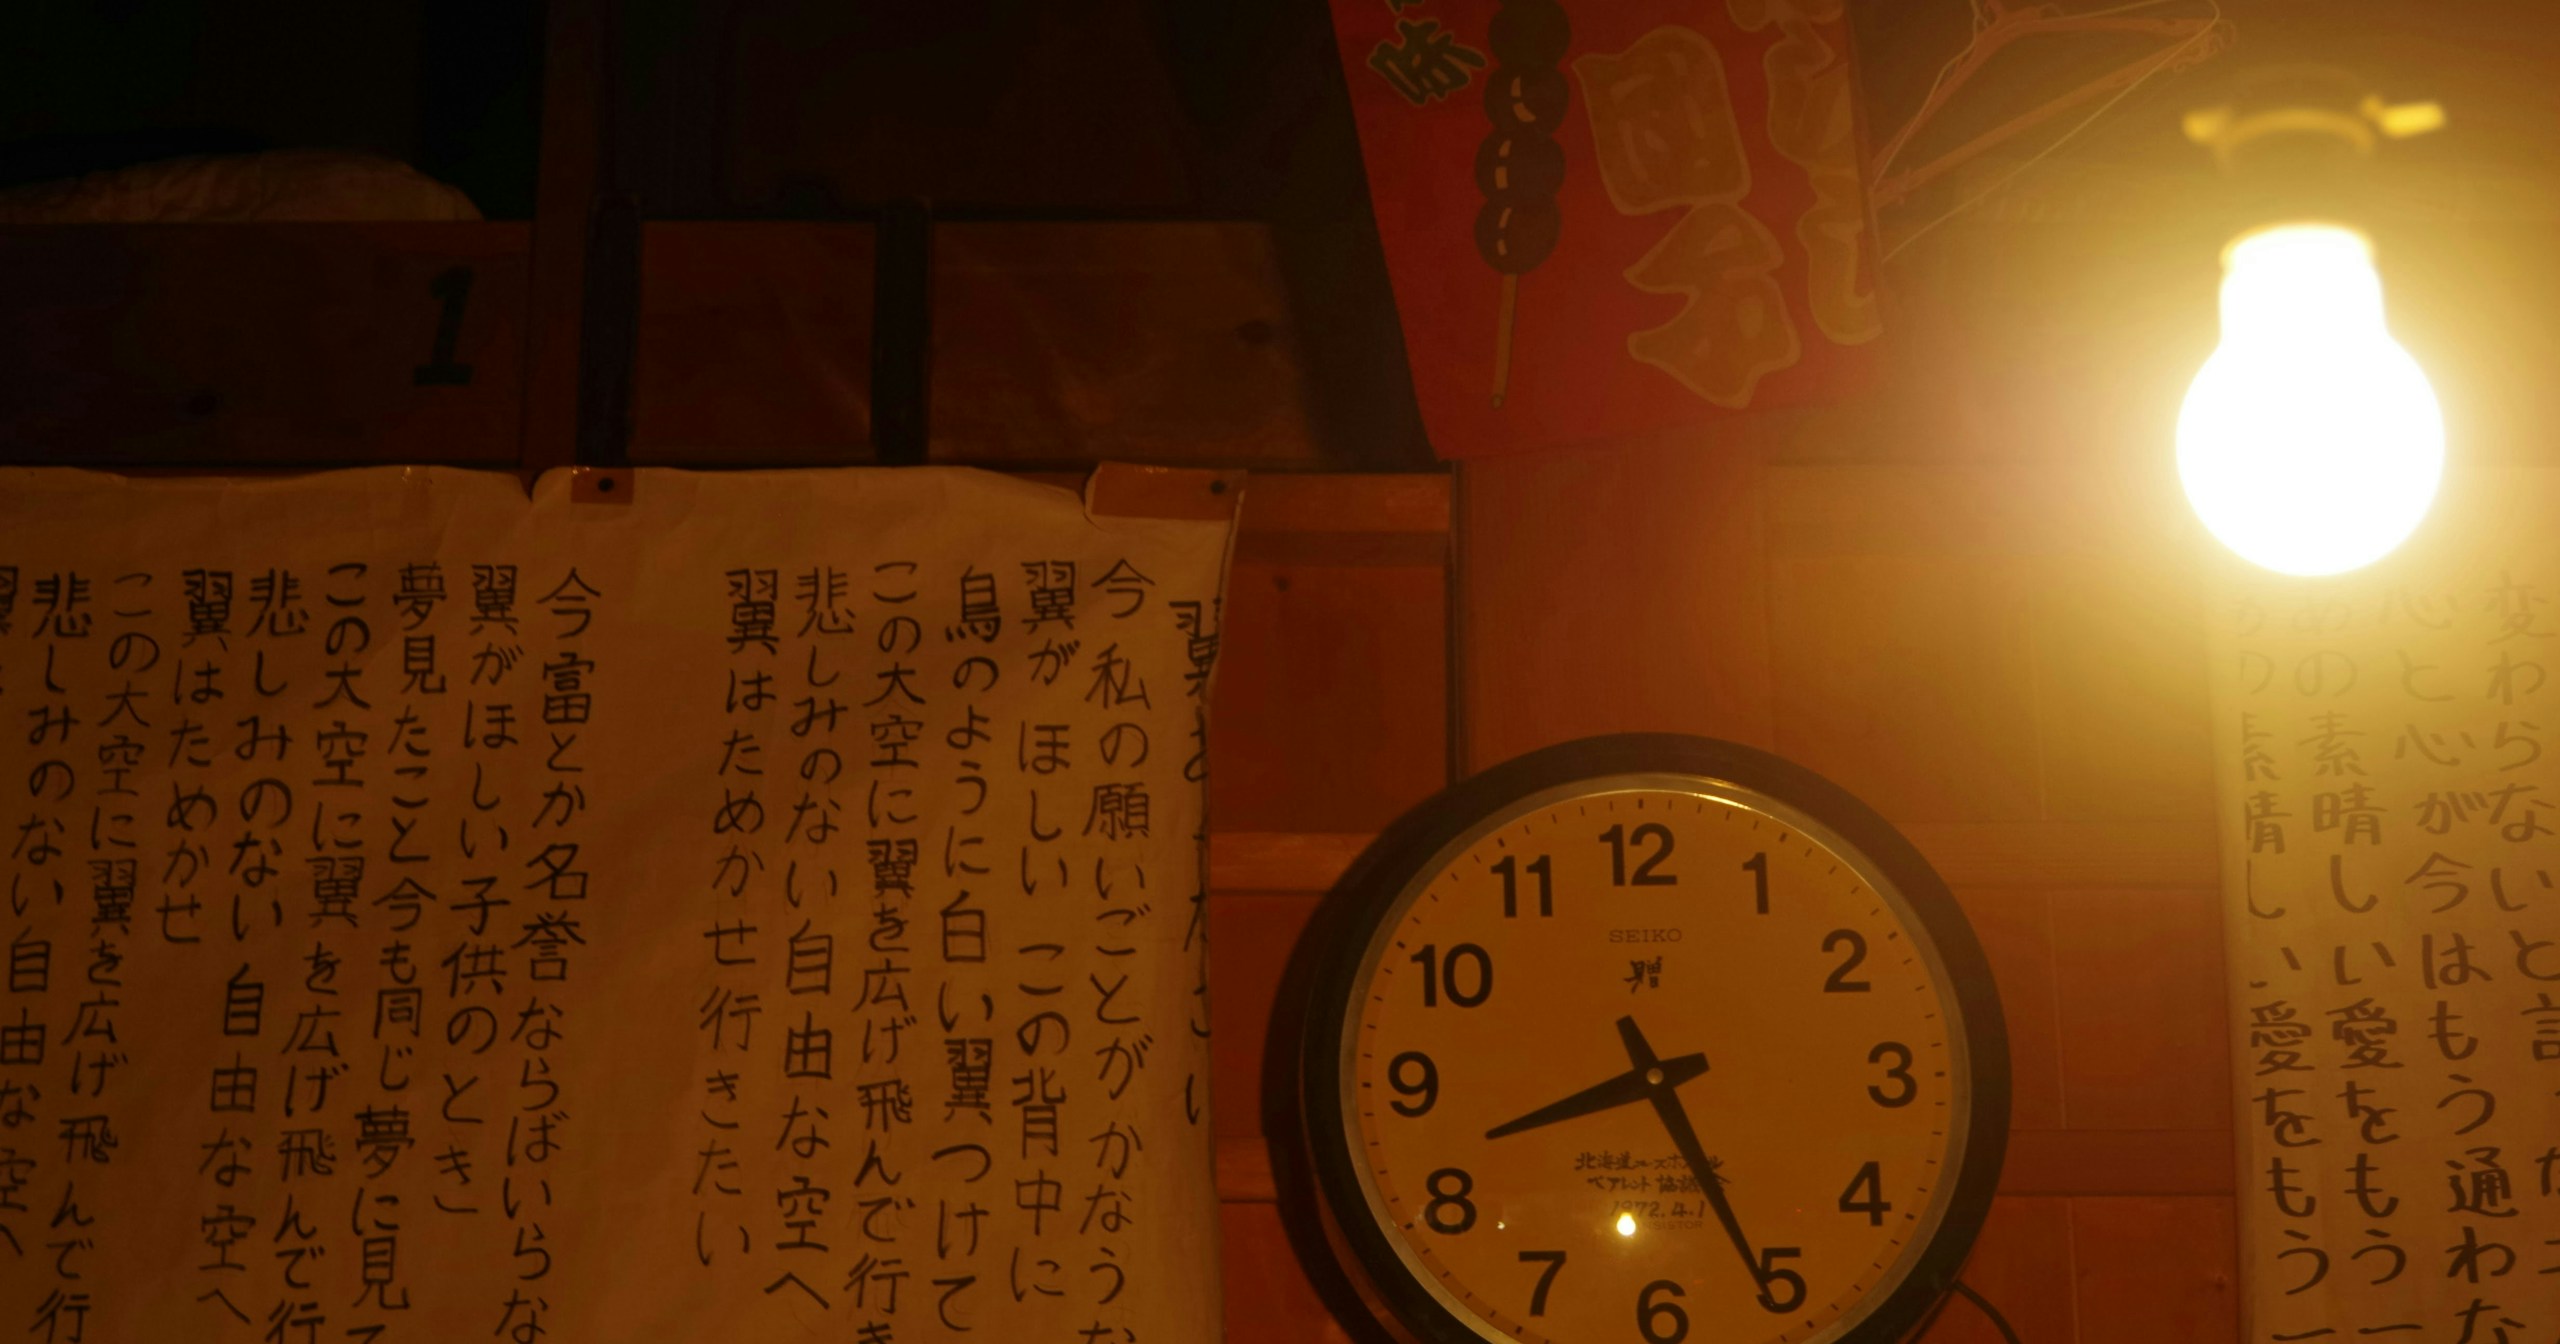 団子
1
翼を
今私の願いごとがかなうな
翼がほしい この背中に
鳥のように白い翼つけて
この大空に翼を広げ飛んで行き
悲しみのない自由な空へ
翼はためかせ行きたい
今富とか名誉ならばいらな
翼がほしい子供のとき
夢見たこと今も同じ夢に見て
この大空に翼を広げ飛んで行
悲しみのない自由な空へ
翼はためかせ
この大空に翼を広げ飛んで行
悲しみのない自由な空へ
12
1
2
3
4
5
6
7
8
9
10
11
SEIKO
贈
北海道ユースホステル
ペアレント協議会
1972.4.1
変わらないと言
心と心が今はもう通わな
あの素晴しい愛をもう一
あの素晴しい愛をもう一